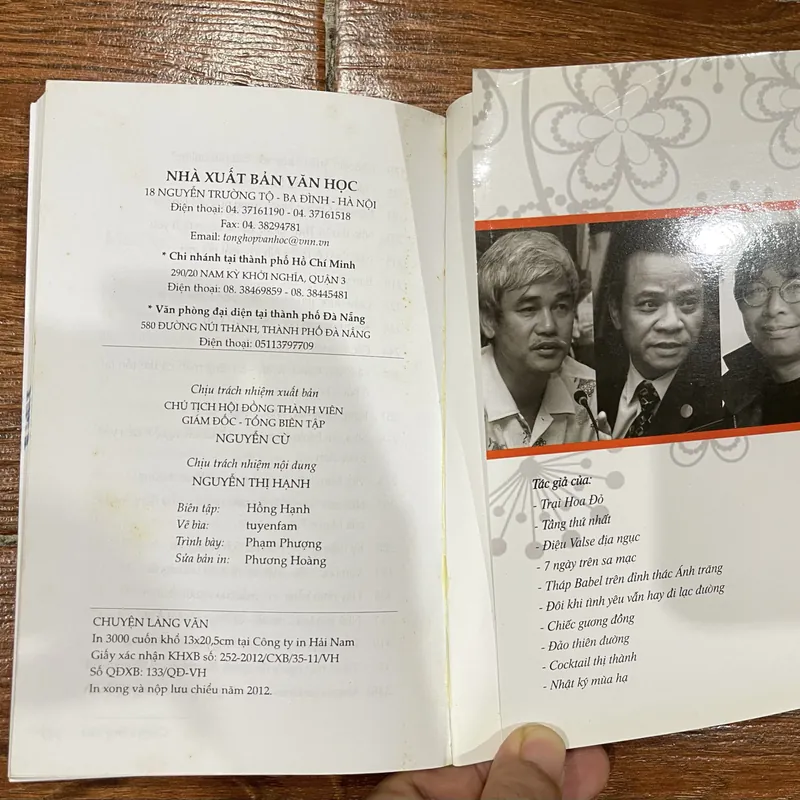 NHÀ XUẤT BẢN VĂN HỌC
18 NGUYỄN TRƯỜNG TỘ - BA ĐÌNH - HÀ NỘI
Điện thoại: 04. 37161190 - 04. 37161518
Fax: 04. 38294781
Email: tonghopvanhoc@vnn.vn
* Chi nhánh tại thành phố Hồ Chí Minh
290/20 NAM KỲ KHỞI NGHĨA, QUẬN 3
Điện thoại: 08. 38469859 - 08. 38445481
* Văn phòng đại diện tại thành phố Đà Nẵng
580 ĐƯỜNG NÚI THÀNH, THÀNH PHỐ ĐÀ NẴNG
Điện thoại: 05113797709
Chịu trách nhiệm xuất bản
CHỦ TỊCH HỘI ĐỒNG THÀNH VIÊN
GIÁM ĐỐC - TỔNG BIÊN TẬP
NGUYỄN CỪ
Chịu trách nhiệm nội dung
NGUYỄN THỊ HẠNH
Biên tập: Hồng Hạnh
Vẽ bìa: tuyenfam
Trình bày: Phạm Phượng
Sửa bản in: Phương Hoàng
CHUYỆN LÀNG VĂN
In 3000 cuốn khổ 13x20,5cm tại Công ty in Hải Nam
Giấy xác nhận KHXB số: 252-2012/CXB/35-11/VH
Số QĐXB: 133/QĐ-VH
In xong và nộp lưu chiểu năm 2012.
Tác giả của:
- Trại Hoa Đỏ
- Tầng thứ nhất
- Điệu Valse địa ngục
- 7 ngày trên sa mạc
- Tháp Babel trên đỉnh thác Ánh trăng
- Đôi khi tình yêu vẫn hay đi lạc đường
- Chiếc gương đồng
- Đảo thiên đường
- Cocktail thị thành
- Nhật ký mùa hạ